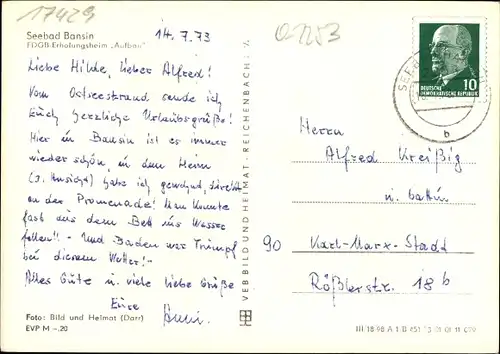 17429
Seebad Bansin
FDGB-Erholungsheim „Aufbau"
14.7.73
Liebe Hilde, lieber Alfred!
Vom Ostseestrand sende ich
Euch herzliche Urlaubsgrüße!
Hier in Bansin ist es immer
wieder schön, in dem Heim
(3. Ansicht) habe ich gewohnt, direkt
an der Promenade! Man könnte
fast aus dem Bett ins Wasser
fallen!! - Und Baden war Trumpf
bei diesem Wetter! -
Alles Gute u. viele liebe Grüße
Eure
Foto: Bild und Heimat (Darr)
EVP M -.20
VEB BILD UND HEIMAT · REICHENBACH i. V.
DEUTSCHE
DEMOKRATISCHE REPUBLIK
10
b
Herrn
Alfred Kreißig
u. Gattin
90 Karl-Marx-Stadt
Rößlerstr. 18 b
III/18/98 A 1 B 451